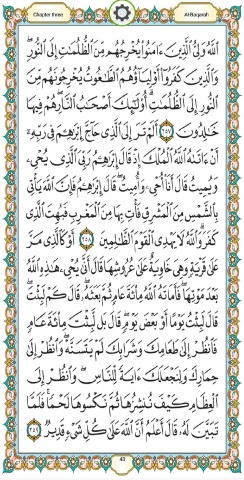 Chapter three
Al-Baqarah
ٱللَّهُ وَلِىُّ ٱلَّذِينَ ءَامَنُوا۟ يُخْرِجُهُم مِّنَ ٱلظُّلُمَٰتِ إِلَى ٱلنُّورِ ۖ
وَٱلَّذِينَ كَفَرُوٓا۟ أَوْلِيَآؤُهُمُ ٱلطَّٰغُوتُ يُخْرِجُونَهُم مِّنَ
ٱلنُّورِ إِلَى ٱلظُّلُمَٰتِ ۗ أُو۟لَٰٓئِكَ أَصْحَٰبُ ٱلنَّارِ ۖ هُمْ فِيهَا
خَٰلِدُونَ ٢٥٧ أَلَمْ تَرَ إِلَى ٱلَّذِى حَآجَّ إِبْرَٰهِۦمَ فِى رَبِّهِۦٓ
أَنْ ءَاتَىٰهُ ٱللَّهُ ٱلْمُلْكَ إِذْ قَالَ إِبْرَٰهِۦمُ رَبِّىَ ٱلَّذِى يُحْىِۦ
وَيُمِيتُ قَالَ أَنَا۠ أُحْىِۦ وَأُمِيتُ ۖ قَالَ إِبْرَٰهِۦمُ فَإِنَّ ٱللَّهَ يَأْتِى
بِٱلشَّمْسِ مِنَ ٱلْمَشْرِقِ فَأْتِ بِهَا مِنَ ٱلْمَغْرِبِ فَبُهِتَ ٱلَّذِى
كَفَرَ ۗ وَٱللَّهُ لَا يَهْدِى ٱلْقَوْمَ ٱلظَّٰلِمِينَ ٢٥٨ أَوْ كَٱلَّذِى مَرَّ
عَلَىٰ قَرْيَةٍ وَهِىَ خَاوِيَةٌ عَلَىٰ عُرُوشِهَا قَالَ أَنَّىٰ يُحْىِۦ هَٰذِهِ ٱللَّهُ
بَعْدَ مَوْتِهَا ۖ فَأَمَاتَهُ ٱللَّهُ مِا۟ئَةَ عَامٍ ثُمَّ بَعَثَهُۥ ۖ قَالَ كَمْ لَبِثْتَ ۖ
قَالَ لَبِثْتُ يَوْمًا أَوْ بَعْضَ يَوْمٍ ۖ قَالَ بَل لَّبِثْتَ مِا۟ئَةَ عَامٍ
فَٱنظُرْ إِلَىٰ طَعَامِكَ وَشَرَابِكَ لَمْ يَتَسَنَّهْ ۖ وَٱنظُرْ إِلَىٰ
حِمَارِكَ وَلِنَجْعَلَكَ ءَايَةً لِّلنَّاسِ ۖ وَٱنظُرْ إِلَى
ٱلْعِظَامِ كَيْفَ نُنشِزُهَا ثُمَّ نَكْسُوهَا لَحْمًا ۚ فَلَمَّا
تَبَيَّنَ لَهُۥ قَالَ أَعْلَمُ أَنَّ ٱللَّهَ عَلَىٰ كُلِّ شَىْءٍ قَدِيرٌ ٢٥٩
43